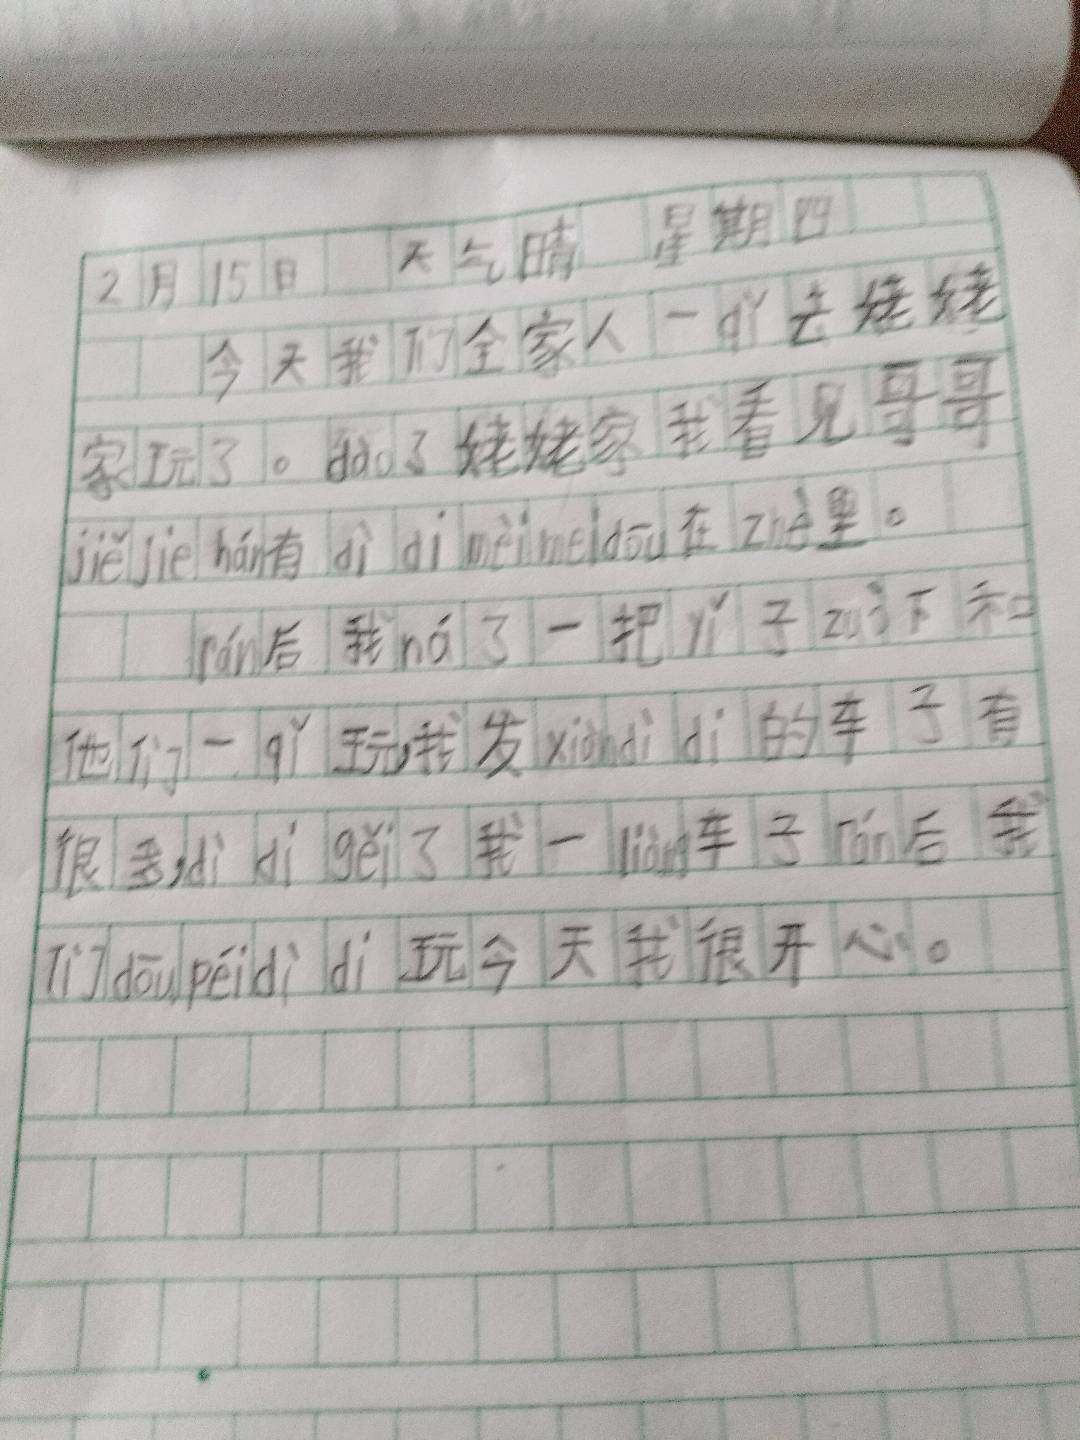 2月15日 天气晴 星期四
今天我们全家人一qǐ去姥姥
家玩了。dào了姥姥家我看见哥哥
jiějie hán有dìdi mèimeidōu在zhè里。
rán后我ná了一把yǐ子zuò下和
他们一qǐ玩,我发xiàndìdi的车子有
很多,dìdi gěi了我一liàng车子rán后我
们dōupéidìdi玩今天我很开心。